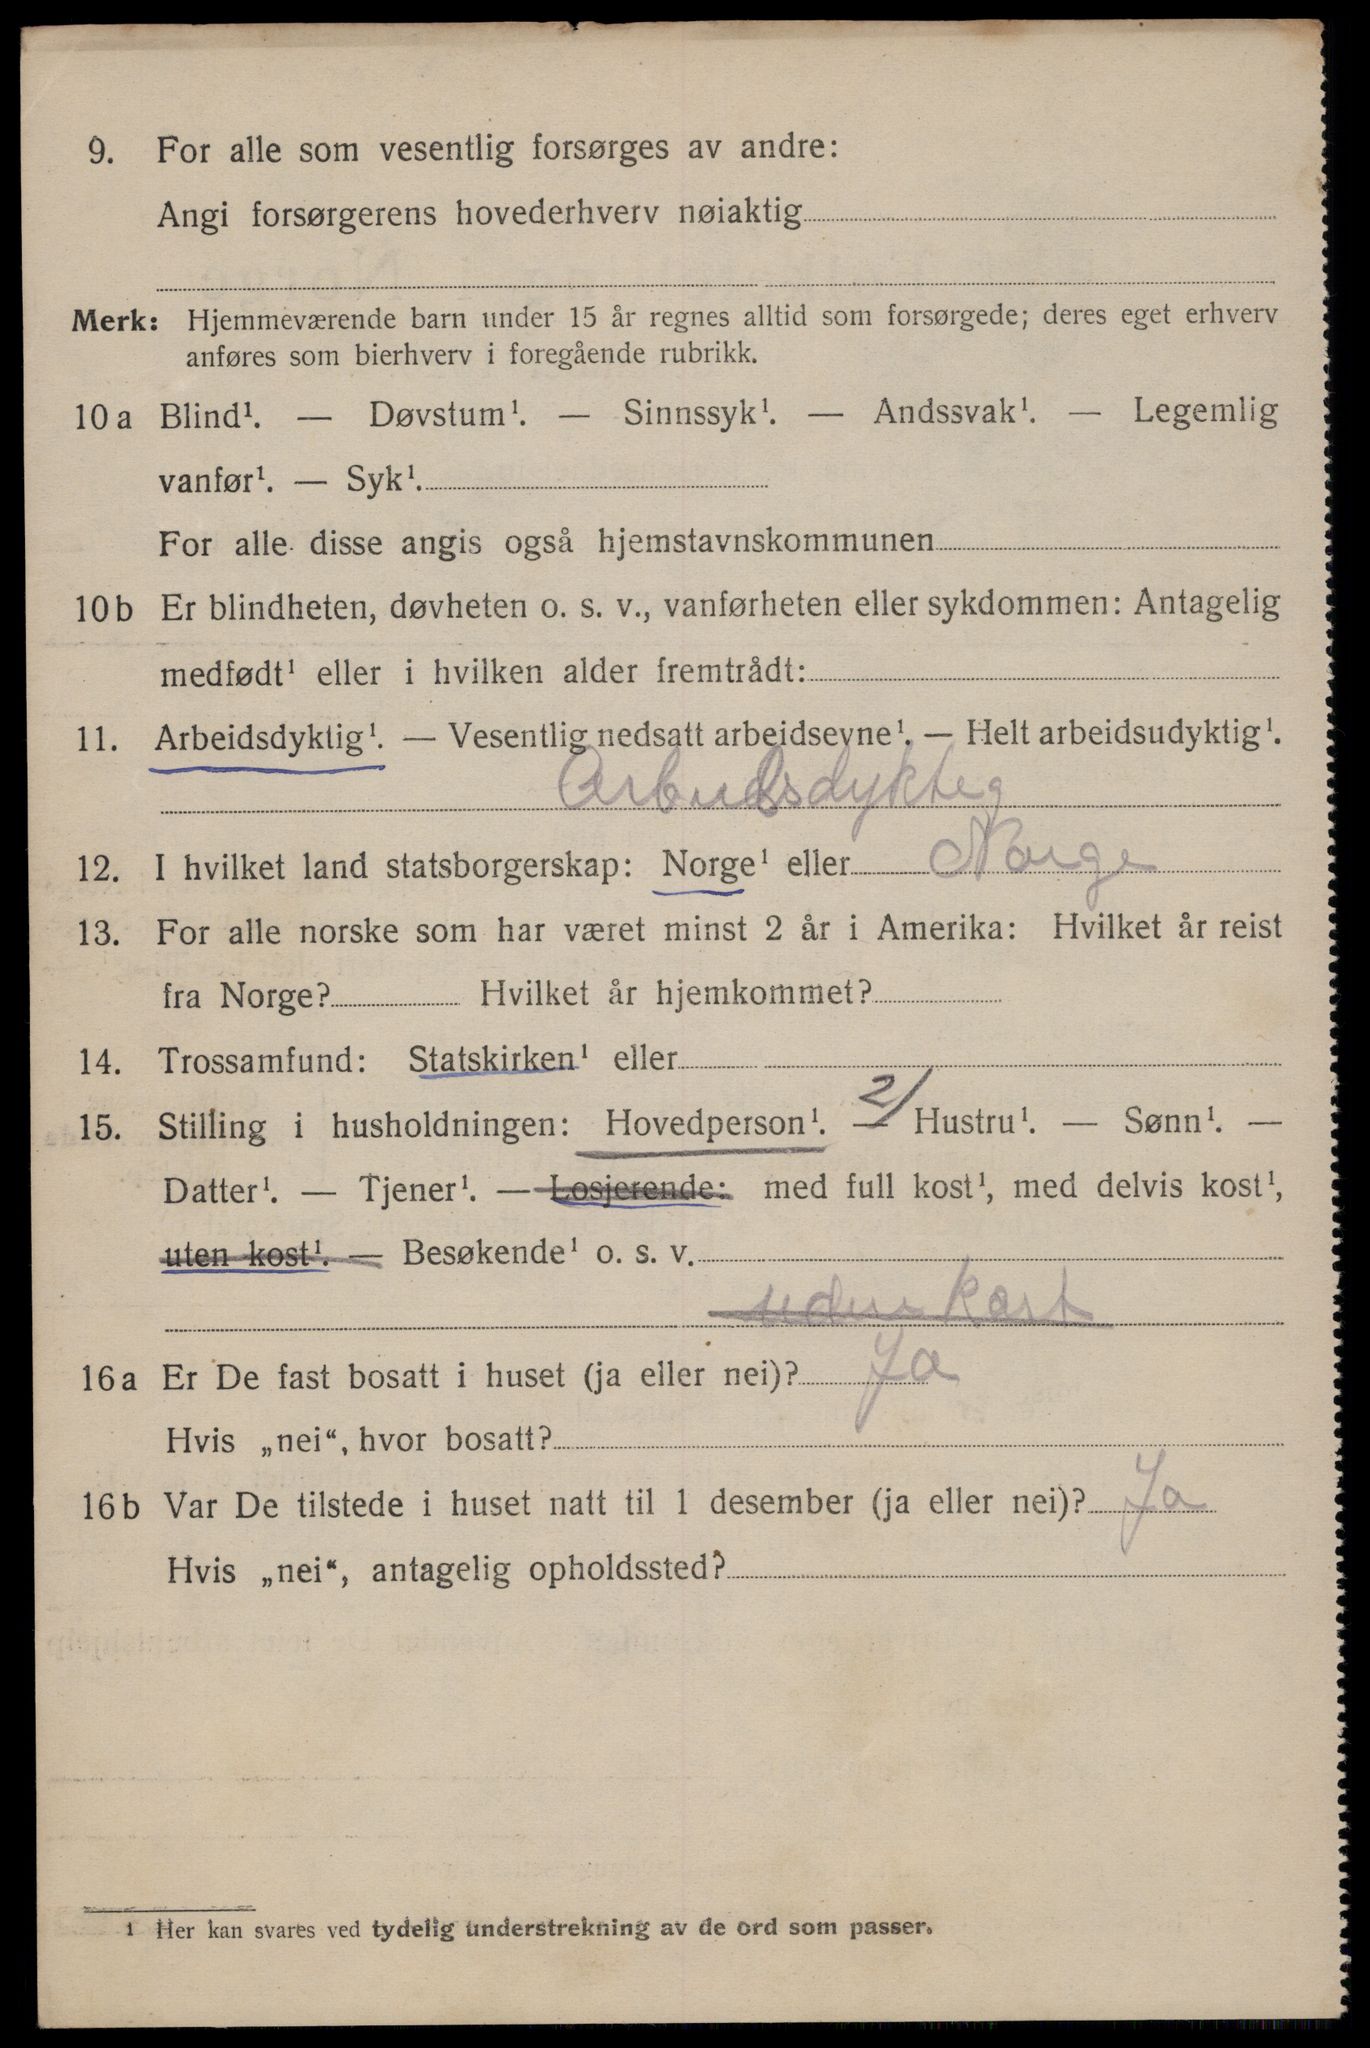 9. For alle som vesentlig forsørges av andre:
Angi forsørgerens hovederhverv nøiaktig
Merk: Hjemmeværende barn under 15 år regnes alltid som forsørgede; deres eget erhverv
anføres som bierhverv i foregående rubrikk.
10 a Blind¹. — Døvstum¹. — Sinnssyk¹. — Andssvak¹. — Legemlig
vanfør¹. — Syk¹.
For alle disse angis også hjemstavnskommunen
10 b Er blindheten, døvheten o. s. v., vanførheten eller sykdommen: Antagelig
medfødt¹ eller i hvilken alder fremtrådt:
11. Arbeidsdyktig¹. — Vesentlig nedsatt arbeidsevne¹. — Helt arbeidsudyktig¹.
Arbeidsdykteg
12. I hvilket land statsborgerskap: Norge¹ eller Norge
13. For alle norske som har været minst 2 år i Amerika: Hvilket år reist
fra Norge? Hvilket år hjemkommet?
14. Trossamfund: Statskirken¹ eller
15. Stilling i husholdningen: Hovedperson¹. — 2/ Hustru¹. — Sønn¹. —
Datter¹. — Tjener¹. — Losjerende: med full kost¹, med delvis kost¹,
uten kost¹. — Besøkende¹ o. s. v.
uden kost
16 a Er De fast bosatt i huset (ja eller nei)? Ja
Hvis „nei“, hvor bosatt?
16 b Var De tilstede i huset natt til 1 desember (ja eller nei)? Ja
Hvis „nei“, antagelig opholdssted?
1 Her kan svares ved tydelig understrekning av de ord som passer.